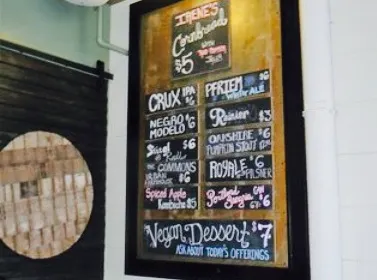 IRENE'S
Cornbread
WITH
$5
CRUX IPA $6
NEGRO $6
MODELO
$6
THE COMMONS
URBAN $6
FARMHOUSE
Spiced Apple
Kombucha $5
PFRIEM $6
ALE
Rainier $3
OAKSHIRE $6
PUMPKIN STOUT
ROYALE $6
PILSNER
Portland
Sangria $6
Vegan Dessert $7
ASK ABOUT TODAY'S OFFERINGS